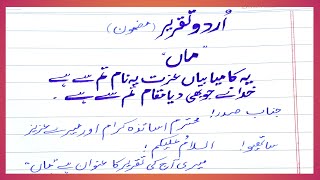 اُردو تقریر (مضمون)
"ماں"
یہ کامیابیاں عزت یہ نام تم سے ہے
خدا نے جو بھی دیا مقام تم سے ہے۔
جناب صدر! محترم اساتذہ کرام اور میرے عزیز
ساتھیو! السلام علیکم!
میری آج کی تقریر کا عنوان ہے "ماں"